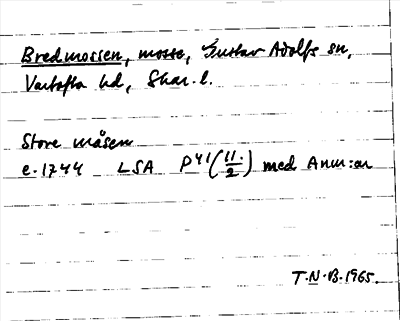 Bredmossen, mosse, Gustav Adolfs sn,
Vartofta hd, Skar. l.
Store måsen
e. 1744 LSA P41 (11/2) med Anm:ar
T.N.B. 1965.